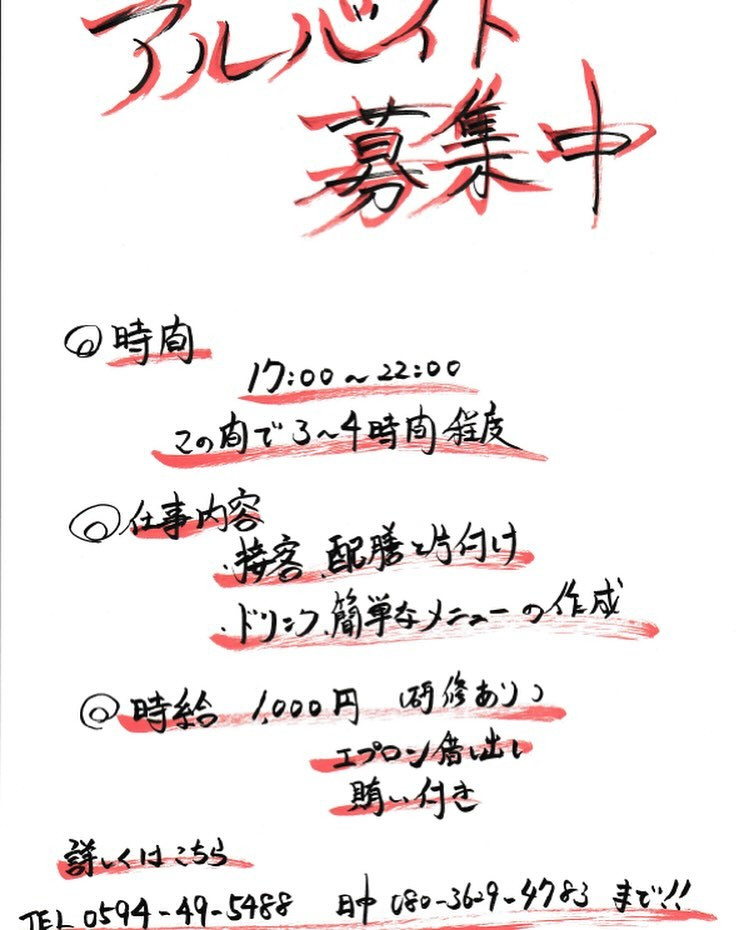 アルバイト
募集中
◎時間
17:00～22:00
この間で3～4時間程度
◎仕事内容
・接客、配膳と片付け
・ドリンク、簡単なメニューの作成
◎時給 1,000円 (研修あり)
エプロン貸し出し
賄い付き
詳しくはこちら
TEL 0594-49-5488 日中 080-3629-4783 まで!!